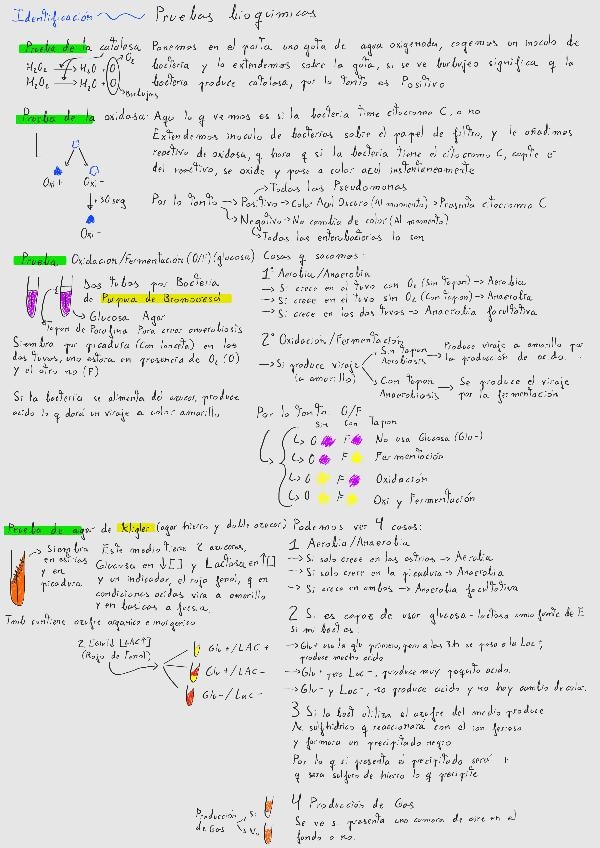 Identificación Pruebas bioquimicas
Prueba de la catalasa Ponemos en el porta una gota de agua oxigenada, cogemos un inoculo de
bacteria y lo extendemos sobre la gota, si se ve burbujeo significa q la
bacteria produce catalasa, por lo tanto es Positivo
H2O2 → H2O + O
H2O2 → H2O + O
O2
Burbujas
Prueba de la oxidasa: Aqui lo q vemos es si la bacteria tiene citocromo C, o no
Extendemos inoculo de bacterias sobre el papel de filtro, y le añadimos
reactivo de oxidasa, q hara q si la bacteria tiene el citocromo C, capte e-
del reactivo, se oxide y pase a color azul instantaneamente
Oxi + Oxi -
+30 seg
Oxi -
Todas las Pseudomonas
Por lo tanto → Positivo → Color Azul Oscuro (Al momento) → Presenta citocromo C
→ Negativo → No cambia de color (Al momento)
Todas las enterobacterias lo son
Prueba Oxidacion/Fermentación (O/F) (glucosa) Cosas q sacamos:
Dos tubos por Bacteria
de Purpura de Bromocresol
Glucosa Agar
Tapon de Parafina Para crear anaerobiosis
Siembra por picadura (Con lanceta) en los
dos tuvos, uno estara en presencia de O2 (O)
y el otro no (F)
Si la bacteria se alimenta del azucar, produce
acido lo q dará un viraje a color amarillo
1º Aerobia/Anaerobia
→ Si crece en el tuvo con O2 (Sin tapon) → Aerobia
→ Si crece en el tuvo sin O2 (Con tapon) → Anaerobia
→ Si crece en los dos tuvos → Anaerobia facultativa
2º Oxidación/Fermentación
→ Si produce viraje
(a amarillo)
Sin tapon
Aerobiosis → Produce viraje a amarillo por
la producción de acido.
Con tapon
Anaerobiosis → Se produce el viraje
por la fermentación
Por lo tanto O/F
Sin Con Tapon
O F No usa Glucosa (Glu-)
O F Fermentación
O F Oxidación
O F Oxi y Fermentación
Prueba de agar de Kligler (agar hierro y doble azucar) Podemos ver 4 cosas:
Siembra
en estrias
y en
picadura
Este medio tiene 2 azucares,
Glucosa en ↓[] y Lactosa en ↑[]
y un indicador, el rojo fenol, q en
condiciones acidas vira a amarillo
y en basicas a fucsia.
Tamb contiene azufre organico e inorganico
(Rojo de Fenol)
Glu +/LAC +
Glu +/LAC -
Glu -/Lac -
1 Aerobia/Anaerobia
→ Si solo crece en las estrias → Aerobia
→ Si solo crece en la picadura → Anaerobia
→ Si crece en ambas → Anaerobia facultativa
2 Si es capaz de usar glucosa - lactosa como fuente de E
Si mi bact es:
→ Glu+ usa la glu primero, pero a las 3h se pasa a la Lac+,
produce mucho acido
→ Glu+ pero Lac-, produce muy poquito acido.
→ Glu- y Lac-, no produce acido y no hay cambio de color.
3 Si la bact utiliza el azufre del medio produce
Ac. sulfhidrico q reaccionará con el ion ferroso
y formara un precipitado negro
Por lo q si presenta el precipitado será +
q sera sulfuro de hierro lo q precipite
Producción
de Gas
Si
No
4 Producción de Gas
Se ve si presenta una camara de aire en el
fondo o no.